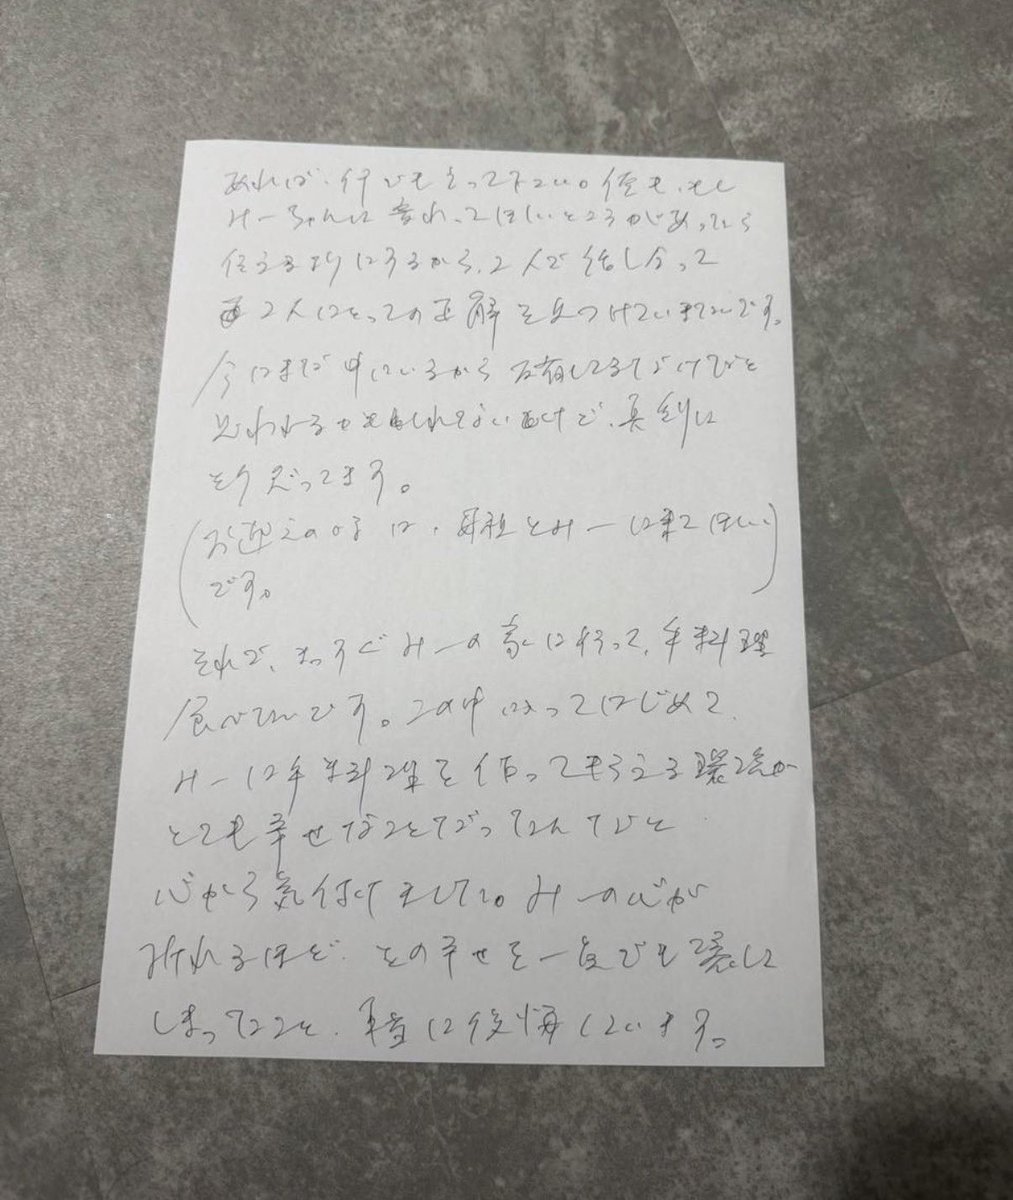 あれば、何でも言って下さい。俺も、もし
みーちゃんに 言ってほしいところがあったら
伝えるようにするから、2人で話し合って
2人にとっての正解を見つけていきたいです。
今はまだ中にいるから 反省してるだけでと
思われるかもしれないけど、真剣に
そう思ってます。
(お迎えの時は、母親とみーに来てほしい
です。)
それで、まっすぐみーの家に行って、手料理
食べたいです。この中に入ってはじめて、
みーに手料理を作ってもらえる環境が
とても幸せなことだったんだと
心から気付けました。みーの心が
離れるほど、その幸せを一度でも壊して
しまったこと、本当に後悔しています。